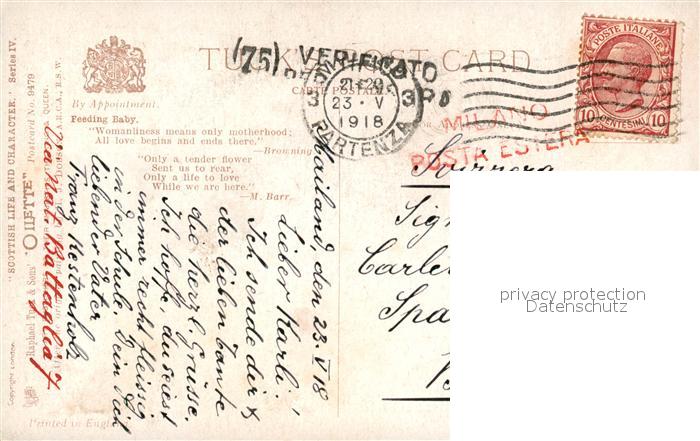 TUCK'S POST CARD
CARTE POSTALE
By Appointment.
Feeding Baby.
"Womanliness means only motherhood;
All love begins and ends there."
—Browning.
"Only a tender flower
Sent us to rear,
Only a life to love
While we are here."
—M. Barr.
"SCOTTISH LIFE AND CHARACTER." Series IV.
Raphael Tuck & Sons' "OILETTE" Postcard No. 9479
Copyright London.
Printed in England
(75) VERIFICATO
MILANO
21-22
23 · V
1918
PARTENZA
MILANO
POSTA ESTERA
POSTE ITALIANE
10 CENTESIMI 10
Mailand, den 23. V 18
Lieber Karli!
Ich sende dir &
der lieben Tante
die herzl. Grüsse.
Ich hoffe, du seiest
immer recht fleissig
in der Schule. Dein dich
liebender Vater
Franz Kestenholz
Via Nat. Battaglia 7
Svizzera
Sig
Carle
Spa
privacy protection
Datenschutz